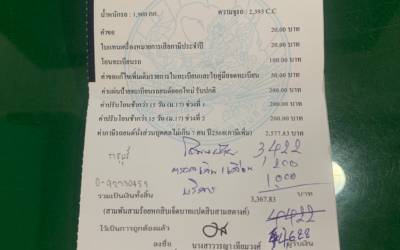 น้ำหนักรถ : 1,900 กก. ความจุรถ : 2,393 C.C
ค่าคำขอ 20.00 บาท
ใบแทนเครื่องหมายการเสียภาษีประจำปี 20.00 บาท
โอนทะเบียนรถ 100.00 บาท
ค่าขอแก้ไขเพิ่มเติมรายการในทะเบียนและใบคู่มือจดทะเบียน 50.00 บาท
ค่าแผ่นป้ายทะเบียนรถยนต์ออกใหม่ รับปกติ 200.00 บาท
ค่าปรับโอนช้ากว่า 15 วัน (ม.17) ช่วงที่ 1 200.00 บาท
ค่าปรับโอนช้ากว่า 15 วัน (ม.17) ช่วงที่ 2 200.00 บาท
ค่าภาษีรถยนต์นั่งส่วนบุคคลไม่เกิน 7 คน ปี2568(ภาษีเพิ่ม) 2,577.83 บาท
3422
1,200
บริการ 1,000
รวมเป็นเงินทั้งสิ้น 3,367.83 บาท
(สามพันสามร้อยหกสิบเจ็ดบาทแปดสิบสามสตางค์)
4422
ไว้เป็นการถูกต้องแล้ว
ลงชื่อ